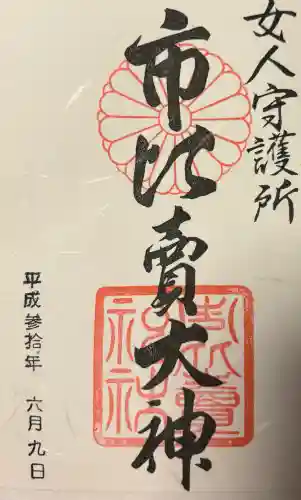 女人守護所
市比賣大神
市比賣神社
平成參拾年 六月九日